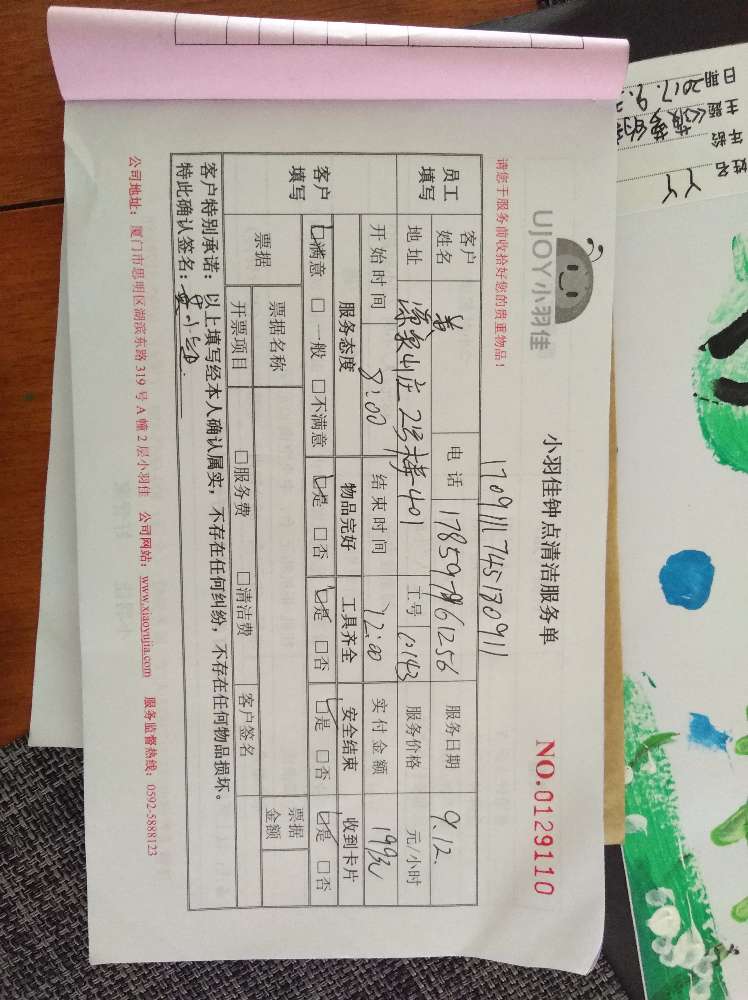 UJOY小羽佳
小羽佳钟点清洁服务单
NO.0129110
请您于服务前收拾好您的贵重物品！
170911174517091
员工填写
客户姓名 黄 电话 服务日期 9.12.
地址 源泉山庄 21号楼-401 工号 服务价格 元/小时
开始时间 8:00 结束时间 12:00 实付金额
客户填写
服务态度 物品完好 工具齐全 安全结束 收到卡片
☑满意 □一般 □不满意 ☑是 □否 ☑是 □否 ☑是 □否 ☑是 □否
票据 票据名称 票据金额
开票项目 □服务费 □清洁费 客户签名
客户特别承诺：以上填写经本人确认属实，不存在任何纠纷，不存在任何物品损坏。
特此确认签名：
公司地址：厦门市思明区湖滨东路 319 号 A 幢 2 层小羽佳 公司网站：www.xiaoyujia.com 服务监督热线：0592-5888123
姓名 YY
年龄
主题
日期 2017.9.